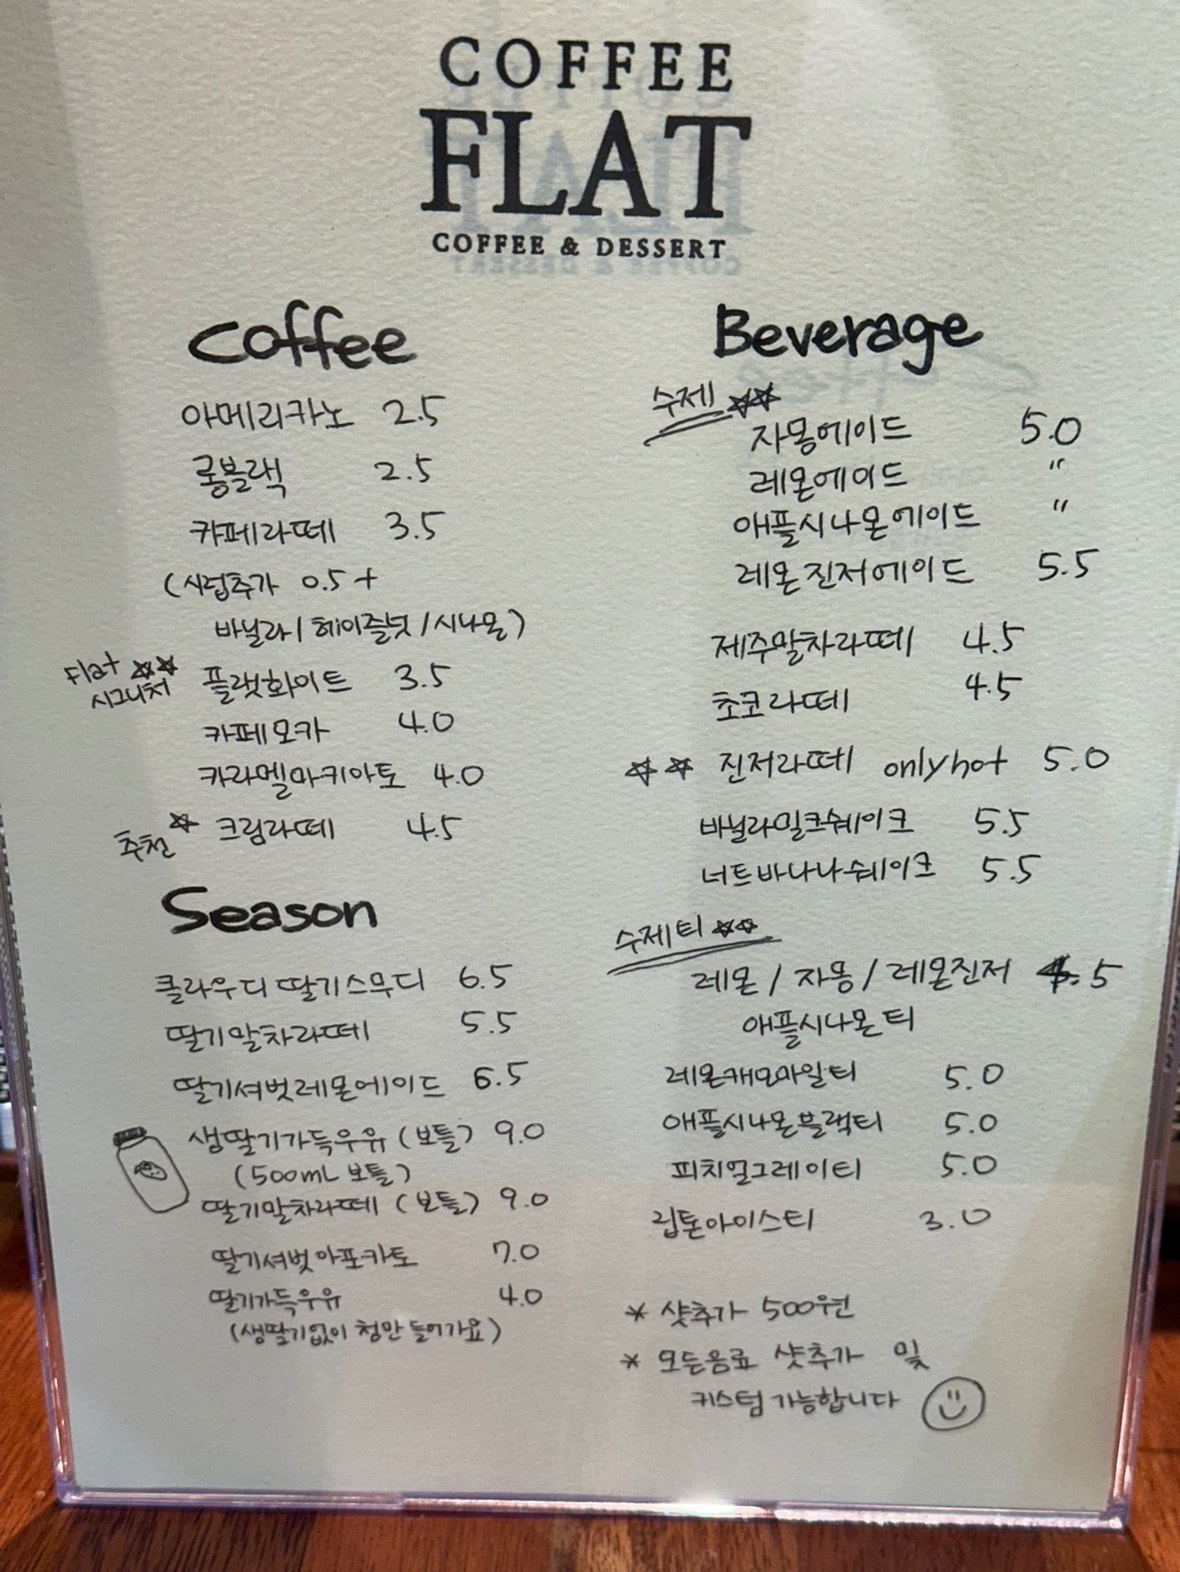 COFFEE
FLAT
COFFEE & DESSERT
Coffee
아메리카노 2.5
롱블랙 2.5
카페라떼 3.5
(시럽추가 0.5+
바닐라/헤이즐넛/시나몬)
Flat
시그니처 플랫화이트 3.5
카페모카 4.0
카라멜마키아토 4.0
추천 크림라떼 4.5
Season
클라우디 딸기스무디 6.5
딸기말차라떼 5.5
딸기셔벗레몬에이드 6.5
생딸기가득우유 (보틀) 9.0
(500mL 보틀)
딸기말차라떼 (보틀) 9.0
딸기셔벗아포카토 7.0
딸기가득우유 4.0
(생딸기없이 청만 들어가요)
Beverage
수제
자몽에이드 5.0
레몬에이드 "
애플시나몬에이드 "
레몬진저에이드 5.5
제주말차라떼 4.5
초코라떼 4.5
진저라떼 only hot 5.0
바닐라밀크쉐이크 5.5
너트바나나쉐이크 5.5
수제티
레몬/자몽/레몬진저 .5
애플시나몬티
레몬캐모마일티 5.0
애플시나몬블랙티 5.0
피치얼그레이티 5.0
립톤아이스티 3.0
* 샷추가 500원
* 모든음료 샷추가 및
커스텀 가능합니다